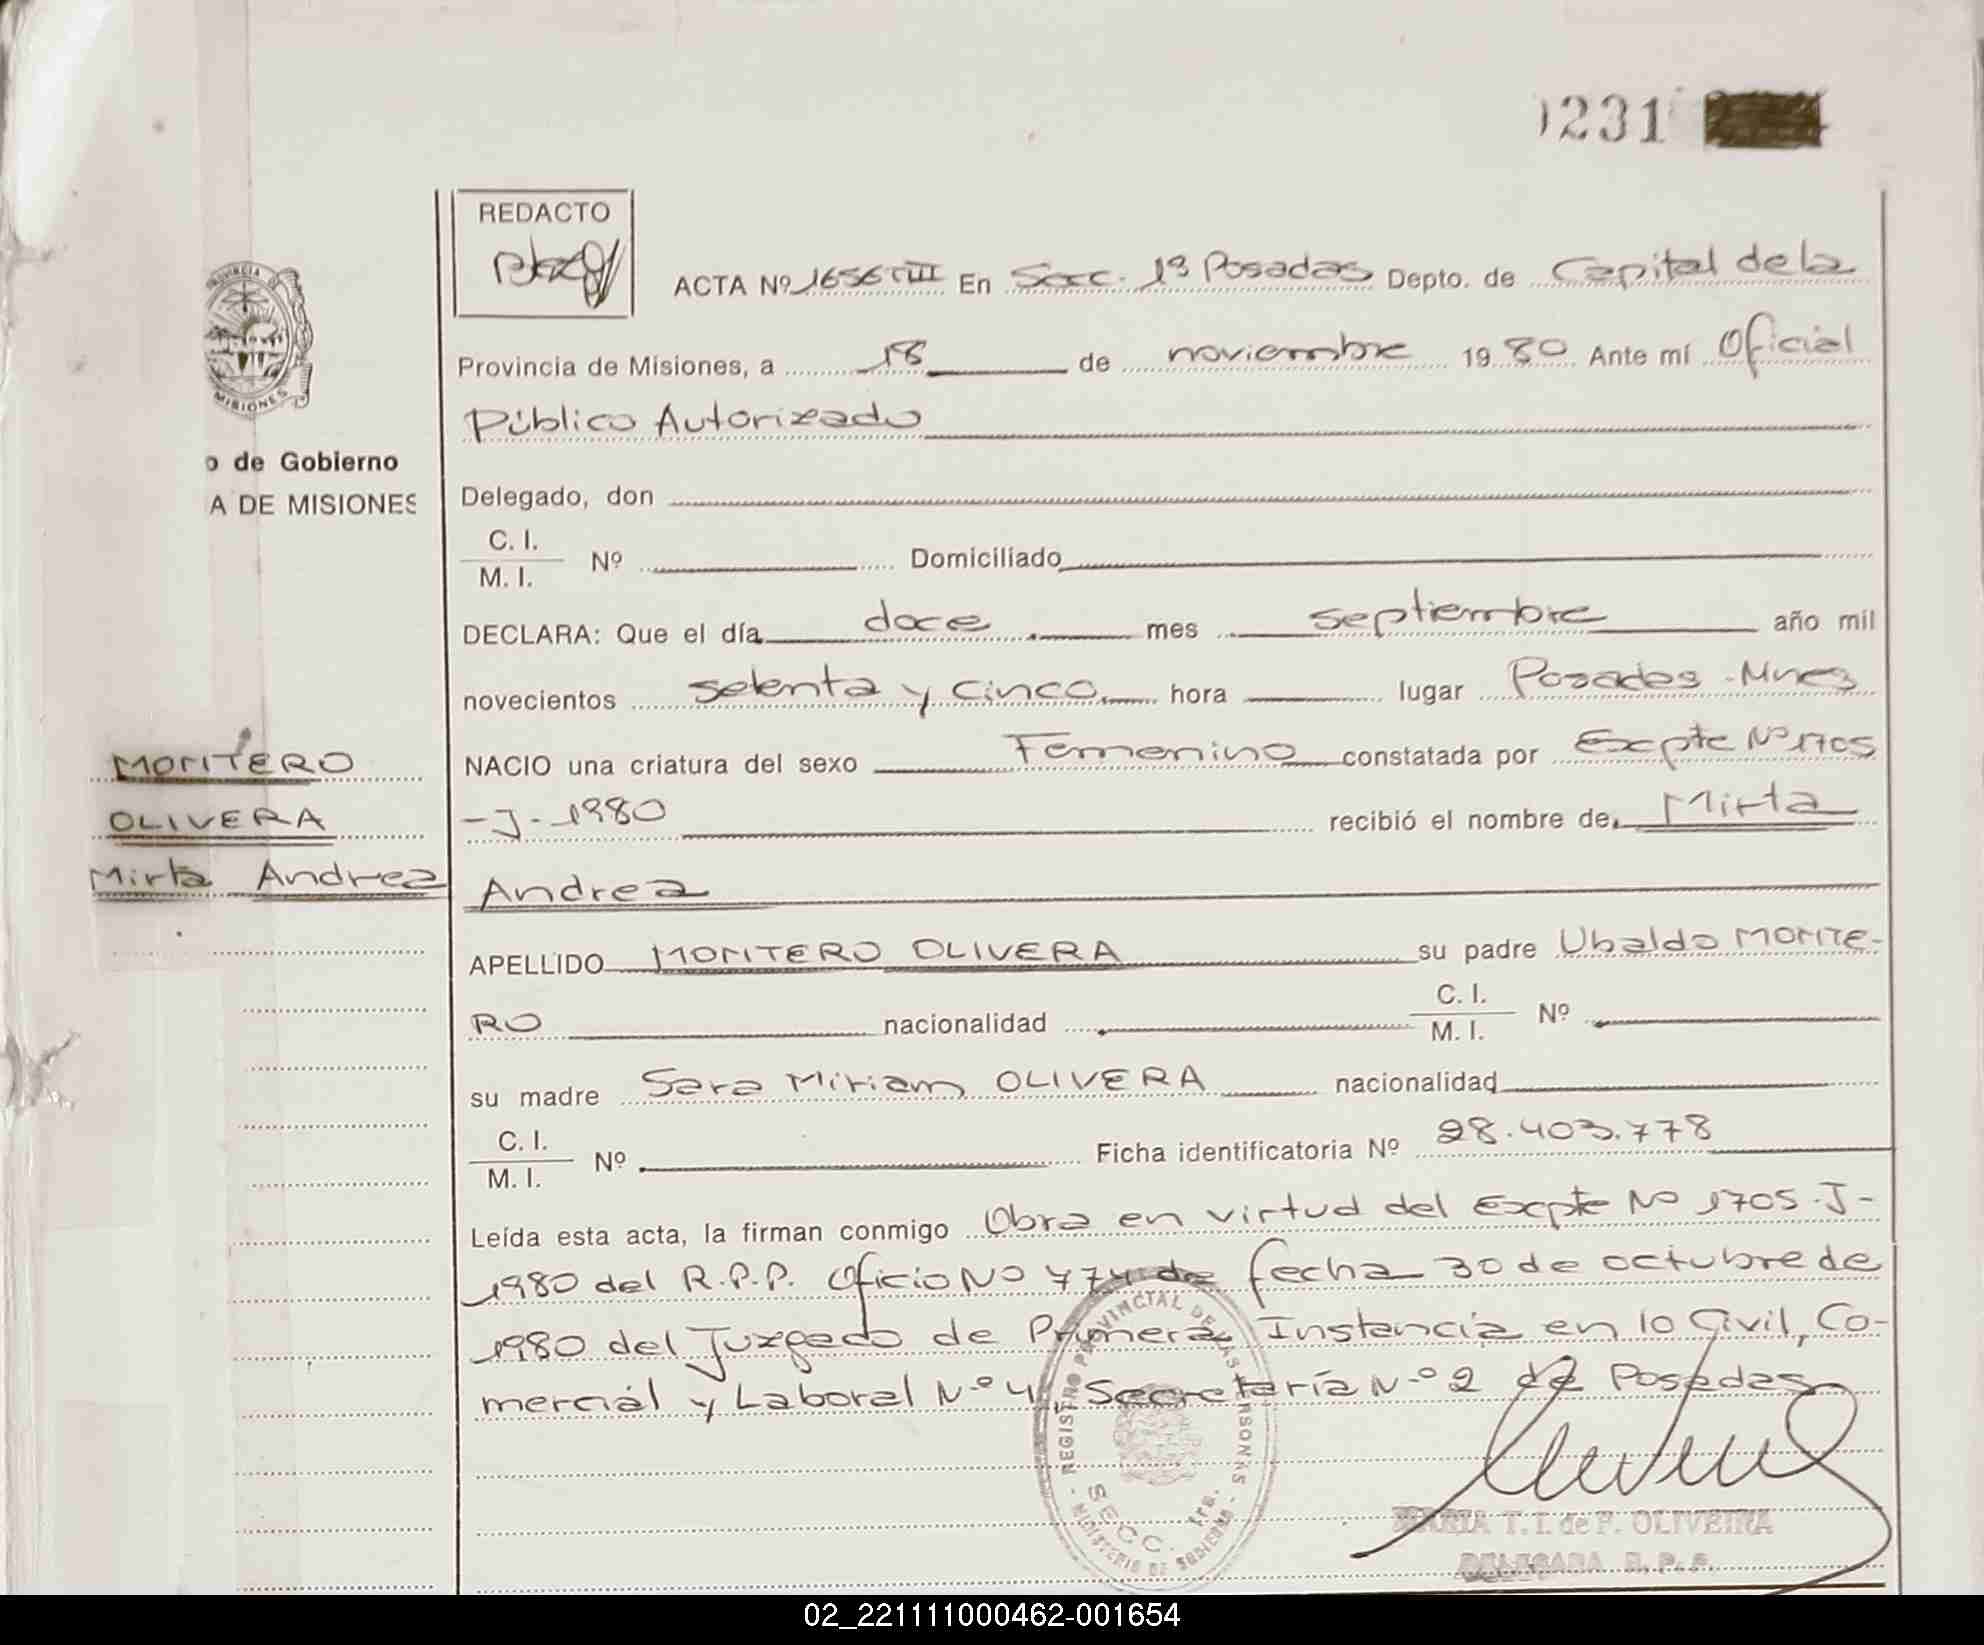 231
REDACTO
ACTA Nº 1656 TIII En Secc. 1ª Posadas Depto. de Capital de la
Provincia de Misiones, a 18 de noviembre 1980 Ante mí Oficial
Público Autorizado
o de Gobierno
A DE MISIONES
PROVINCIA DE
MISIONES
Delegado, don
C. I.
M. I. Nº Domiciliado
DECLARA: Que el día doce mes septiembre año mil
novecientos setenta y cinco hora lugar Posadas - Mnes
NACIO una criatura del sexo Femenino constatada por Expte Nº 1705
- J - 1980 recibió el nombre de Mirta
Andrea
MONTERO
OLIVERA
Mirta Andrea
APELLIDO MONTERO OLIVERA su padre Ubaldo MONTE-
RO nacionalidad C. I.
M. I. Nº
su madre Sara Miriam OLIVERA nacionalidad
C. I.
M. I. Nº Ficha identificatoria Nº 28.403.778
Leída esta acta, la firman conmigo Obra en virtud del Expte Nº 1705-J-
1980 del R.P.P. Oficio Nº 774 de fecha 30 de octubre de
1980 del Juzgado de Primera Instancia en lo Civil, Co-
mercial y Laboral Nº 4, Secretaría Nº 2 de Posadas
REGISTRO PROVINCIAL DE LAS PERSONAS
SECC. 1ra.
MINISTERIO DE GOBIERNO
MARIA T. I. de F. OLIVEIRA
DELEGADA R. P. P.
02_221111000462-001654